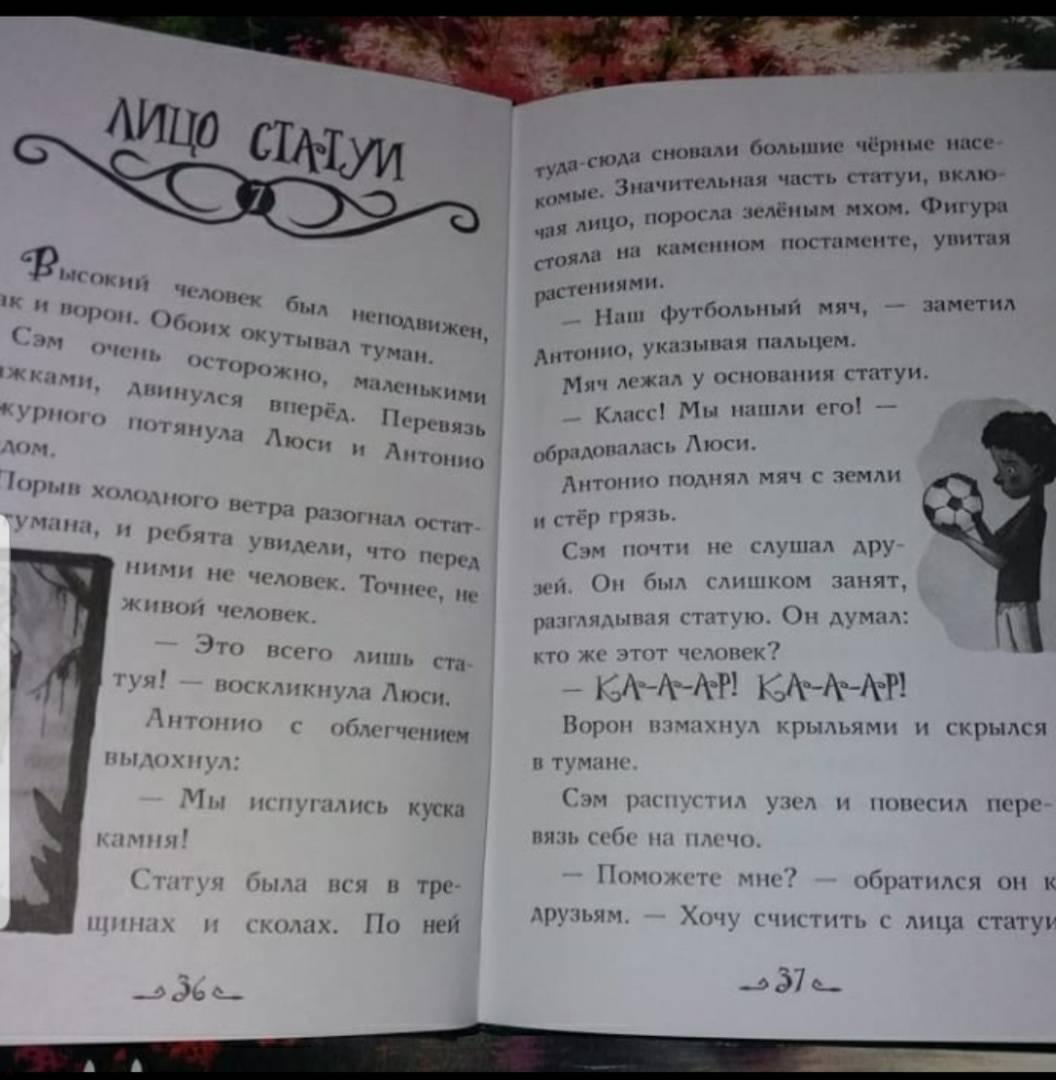 ЛИЦО СТАТУИ
7
Высокий человек был неподвижен,
ак и ворон. Обоих окутывал туман.
Сэм очень осторожно, маленькими
жками, двинулся вперёд. Перевязь
журного потянула Люси и Антонио
дом.
Порыв холодного ветра разогнал остат-
тумана, и ребята увидели, что перед
ними не человек. Точнее, не
живой человек.
— Это всего лишь ста-
туя! — воскликнула Люси.
Антонио с облегчением
выдохнул:
— Мы испугались куска
камня!
Статуя была вся в тре-
щинах и сколах. По ней
36
туда-сюда сновали большие чёрные насе-
комые. Значительная часть статуи, вклю-
чая лицо, поросла зелёным мхом. Фигура
стояла на каменном постаменте, увитая
растениями.
— Наш футбольный мяч, — заметил
Антонио, указывая пальцем.
Мяч лежал у основания статуи.
— Класс! Мы нашли его! —
обрадовалась Люси.
Антонио поднял мяч с земли
и стёр грязь.
Сэм почти не слушал дру-
зей. Он был слишком занят,
разглядывая статую. Он думал:
кто же этот человек?
— КА-А-АР! КА-А-АР!
Ворон взмахнул крыльями и скрылся
в тумане.
Сэм распустил узел и повесил пере-
вязь себе на плечо.
— Поможете мне? — обратился он к
друзьям. — Хочу счистить с лица статуи
37